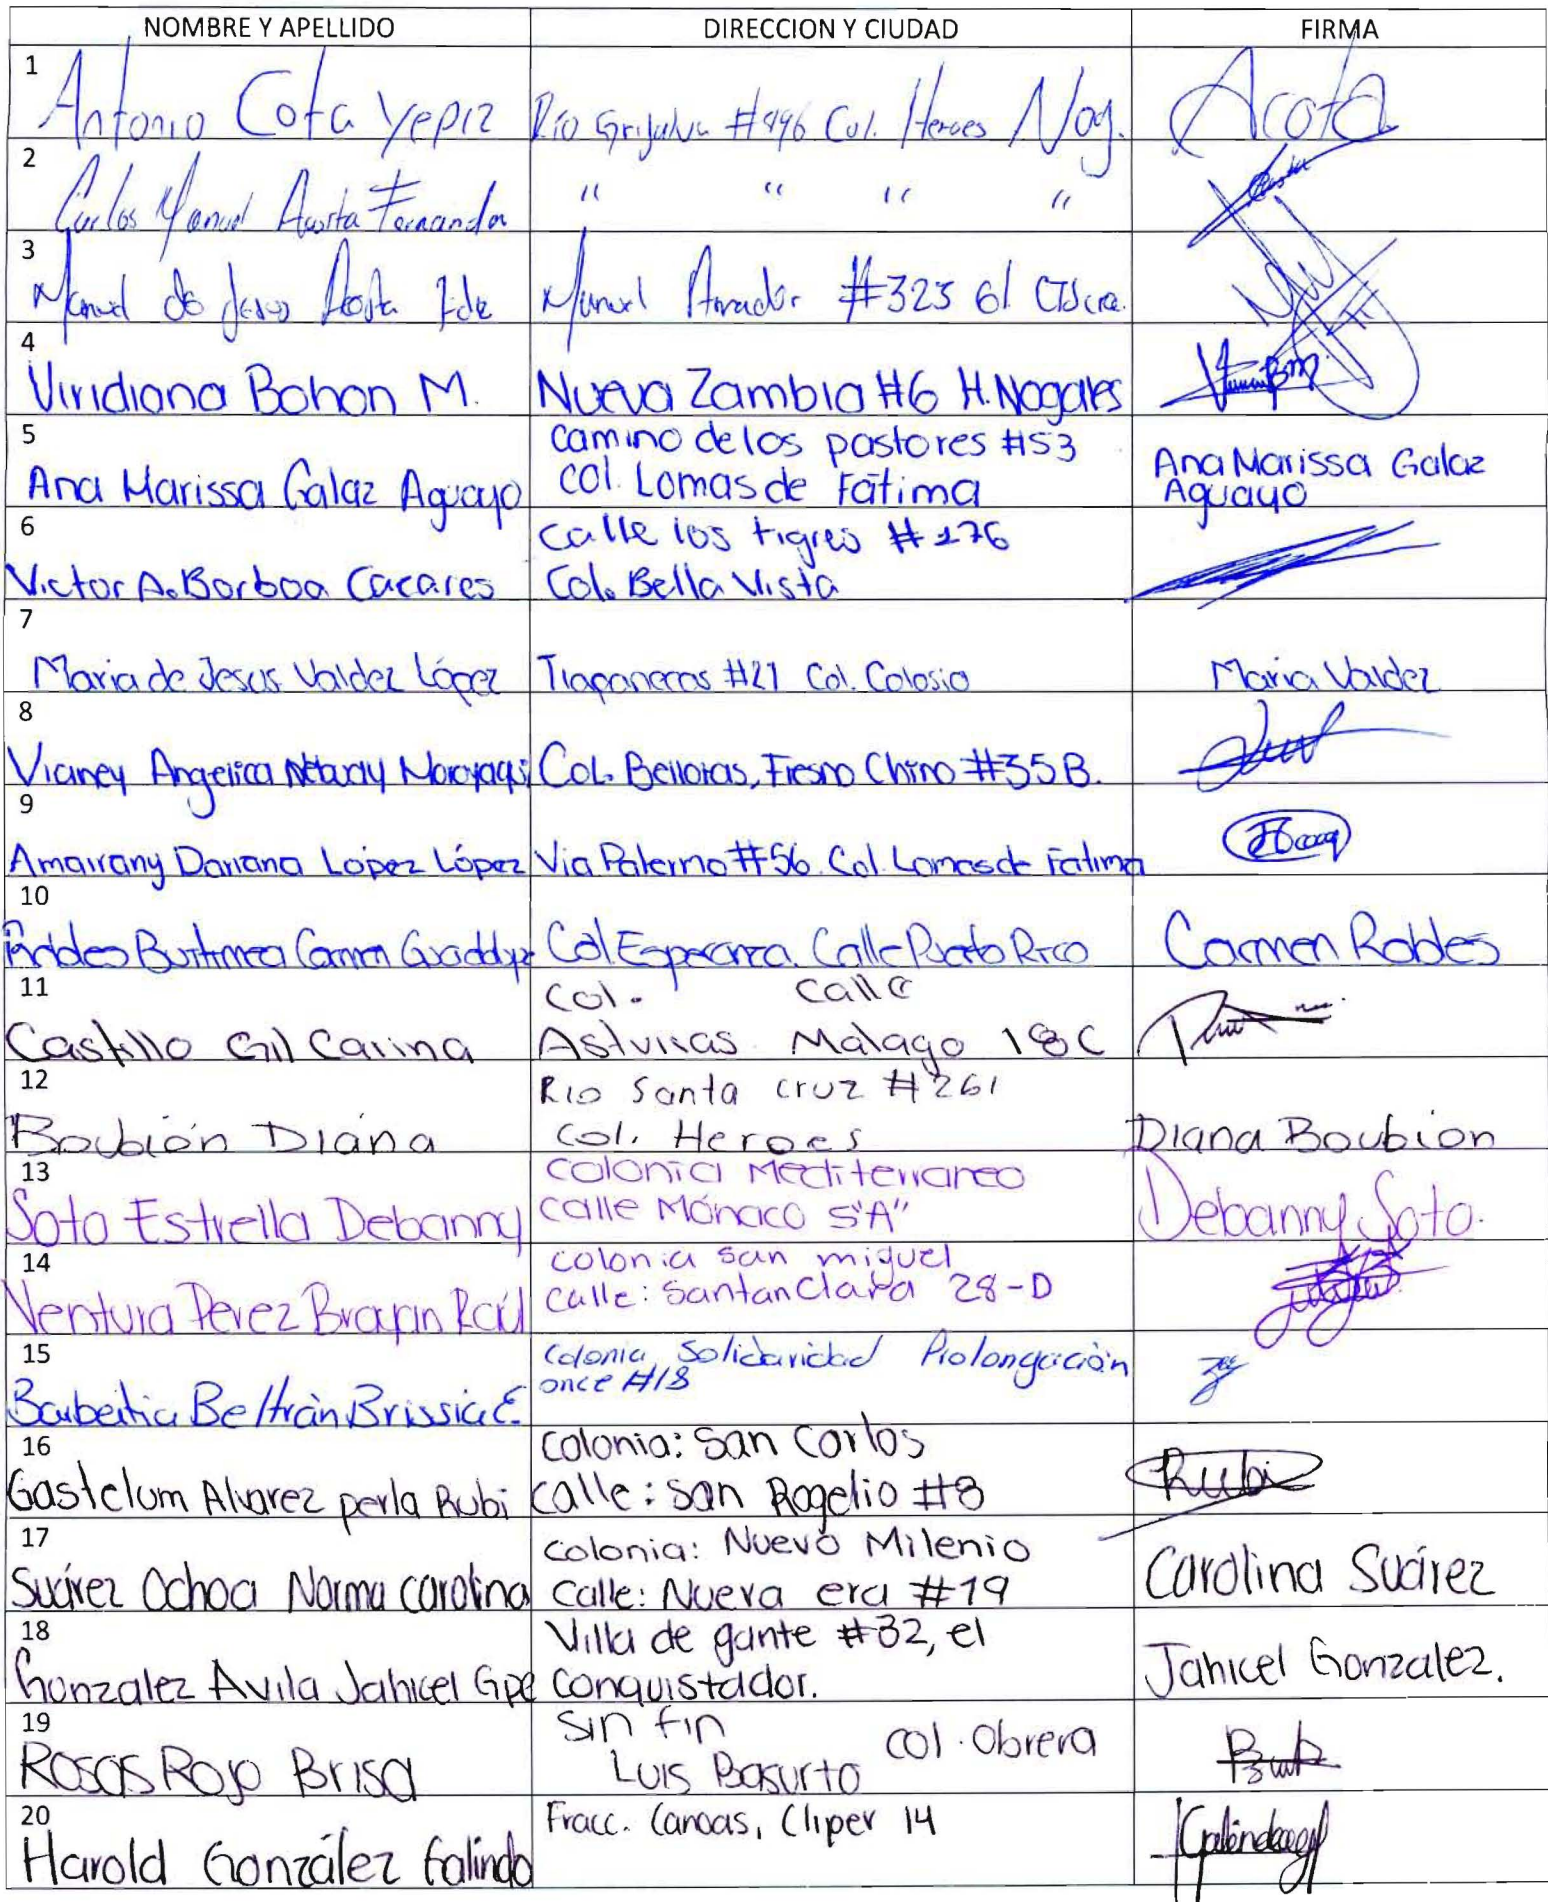 NOMBRE Y APELLIDO DIRECCION Y CIUDAD FIRMA
1
Antonio Cota Yepiz Río Grijalva #496 Col. Heroes Nog. Acota
2
Carlos Manuel Acosta Fernandez " " " "
3
Manuel de Jesus Acosta Fdz Manuel Amador #323 El
4
Viridiana Bohon M. Nueva Zambia #6 H. Nogales
5
Ana Marissa Galaz Aguayo
camino de los pastores #53
col. Lomas de Fátima
Ana Marissa Galaz
Aguayo
6
Victor A. Borboa Cacares
calle los tigres # 276
Col. Bella Vista
7
Maria de Jesus Valdez López Tlapanecas #21 Col. Colosio Maria Valdez
8
Vianey Angelica Col. Bellotas, Fresno Chino #35B.
9
Amairany Dariana López López Via Palermo #56. Col. Lomas de Fatima
10
Buitimea Carmen Col Esperanza. Calle Puerto Rico Carmen Robles
11
Castillo Gil Carina
Col. Calle
Asturias Malaga 18C
12
Boubión Diana
Rio Santa cruz #261
Col. Heroes
Diana Boubion
13
Soto Estrella Debanny
colonia Mediterraneo
calle Mónaco 5"A"
Debanny Soto.
14
Ventura Perez Brayan Raúl
colonia san miguel
calle: Santan Clara 28-D
15
Beltrán Brissia E.
Colonia Solidaridad Prolongación
once #18
16
Gastelum Alvarez perla Rubi
colonia: San Carlos
calle: san Rogelio #8
Rubi
17
Suárez Ochoa Norma carolina
colonia: Nuevo Milenio
calle: Nueva era #19
Carolina Suárez
18
Gonzalez Avila Jahicel Gpe
Villa de gante #32, el
Conquistador.
Jahicel Gonzalez.
19
Rosas Rojo Brisa
Sin fin
Luis Basurto col. Obrera
20
Harold González Galindo
Fracc. Canoas, Cliper 14